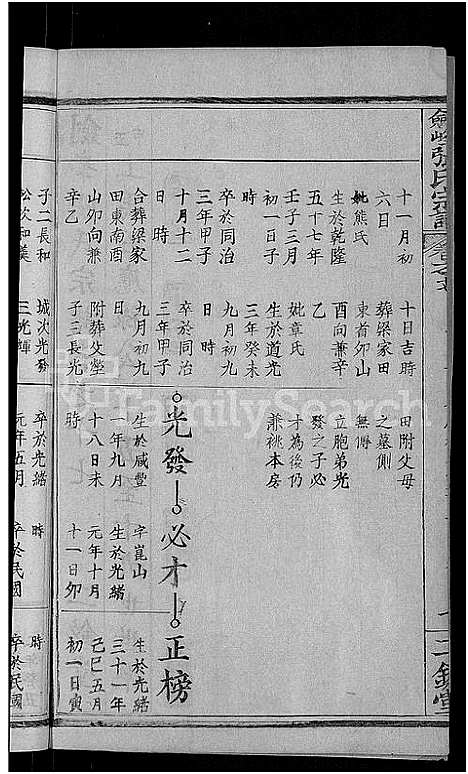 張氏宗譜
十一月初
六日
妣熊氏
生於乾隆
五十七年
壬子三月
時
卒於同治
三年甲子
十月十二
日時
合葬梁家
田東南酉
山卯向兼
辛乙
子二長和
松次和美
十日吉時
葬梁家田
東首卯山
酉向兼辛
乙
妣章氏
生於道光
三年癸未
九月初九
日時
卒於同治
三年甲子
九月初九
附葬父塋
子三長光
城次光發
三光輝
田附父母
之墓側
無傳
立胞弟光
發之子必
才為後仍
兼祧本房
光發
生於咸豐
一年九月
十八日未
時
卒於光緒
元年五月
必才
字崑山
生於光緒
元年十月
十一日卯
時
卒於民國
正榜
生於光緒
三十一年
己巳五月
初一日寅
時
卒於民國
FamilySearch